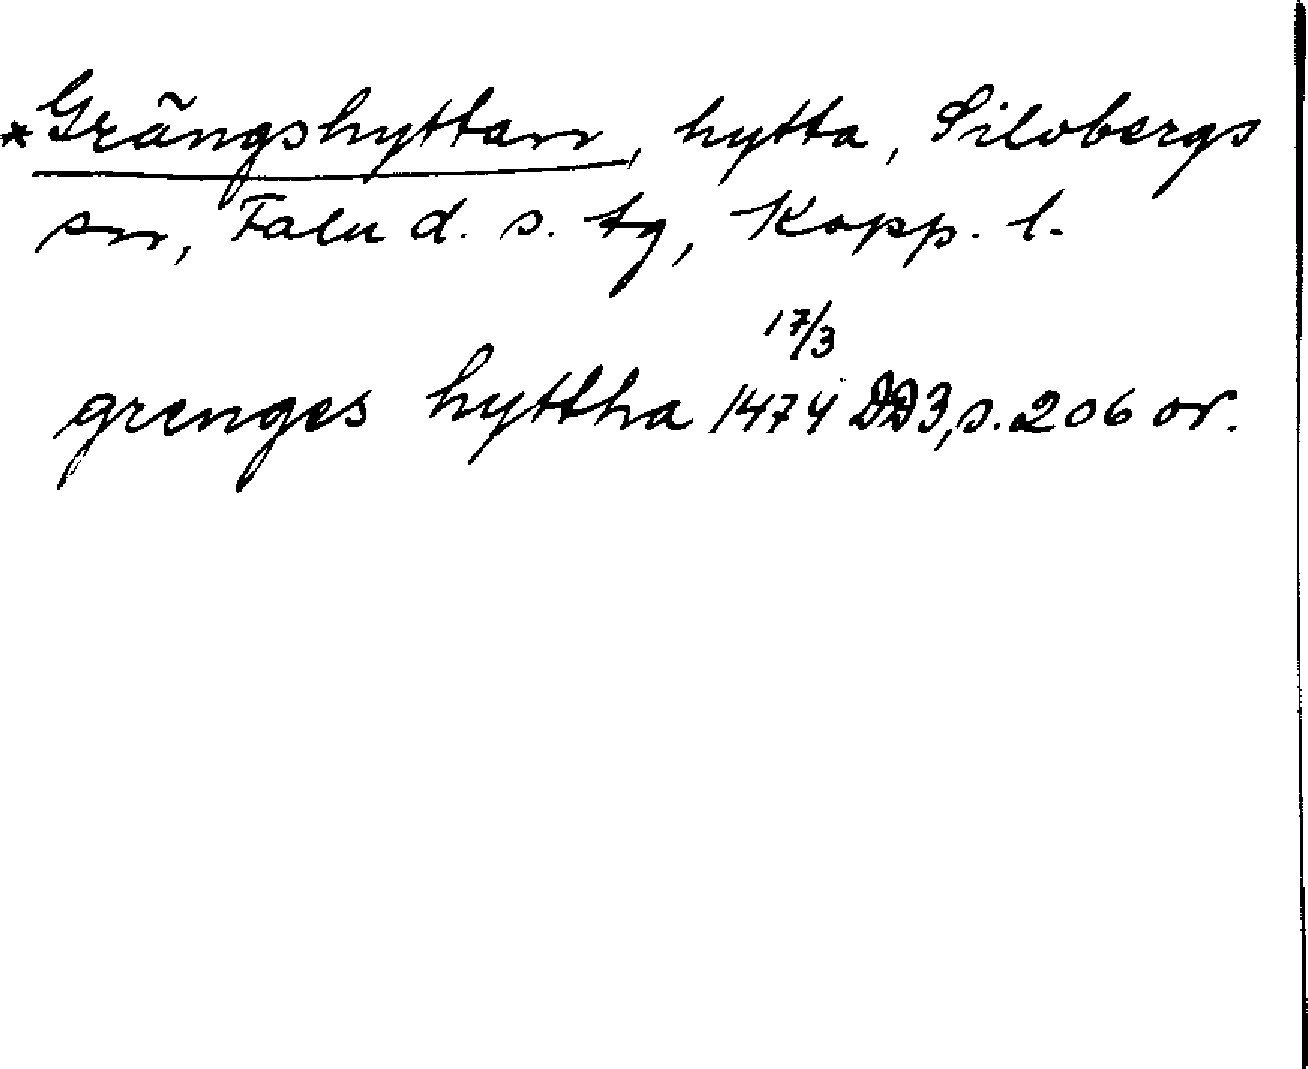 *Grängshyttan, hytta, Silvbergs
sn, Falu d. s. tg, Kopp. l.
17/3
grenges hyttha 1474 DD3, s. 206 or.